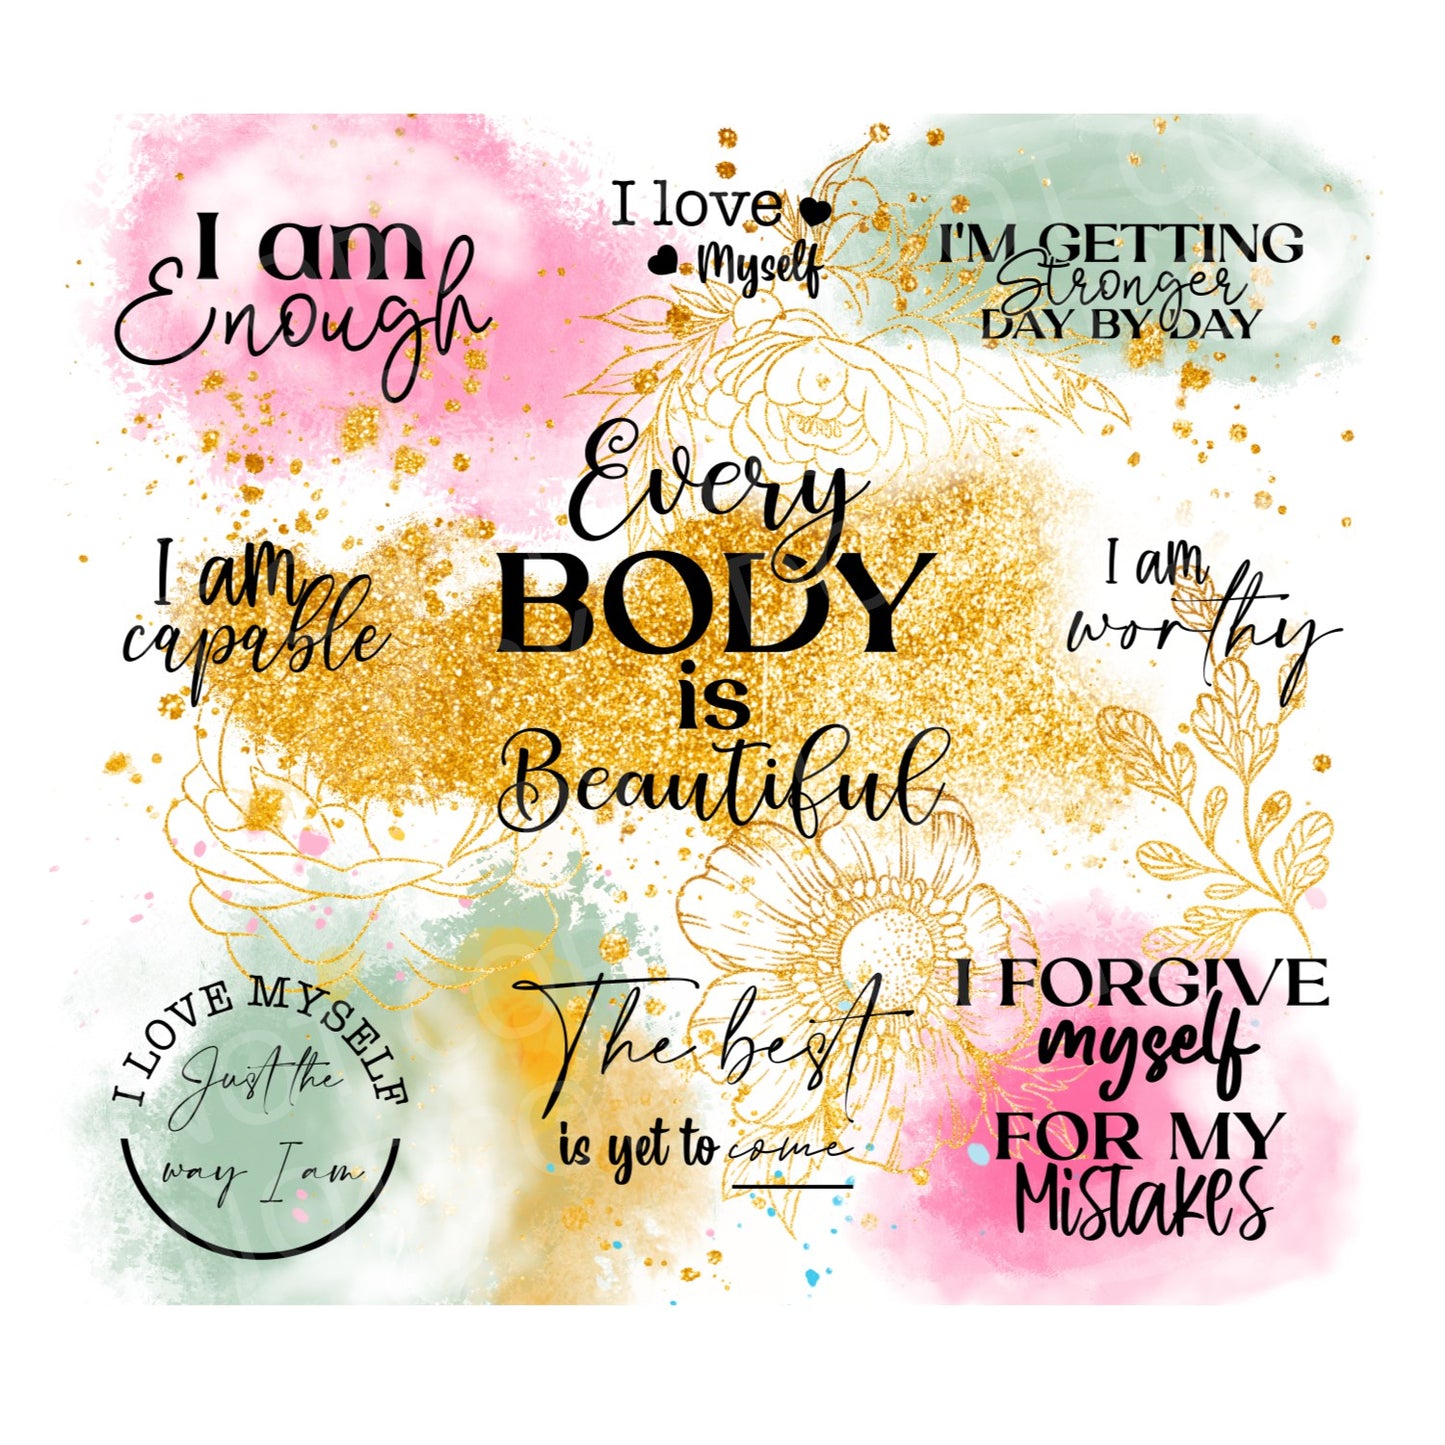 I am
Enough
I love
Myself
I'M GETTING
Stronger
DAY BY DAY
Every
BODY
is
Beautiful
I am
capable
I am
worthy
I LOVE MYSELF
Just the
way I am
The best
is yet to come
I FORGIVE
myself
FOR MY
Mistakes